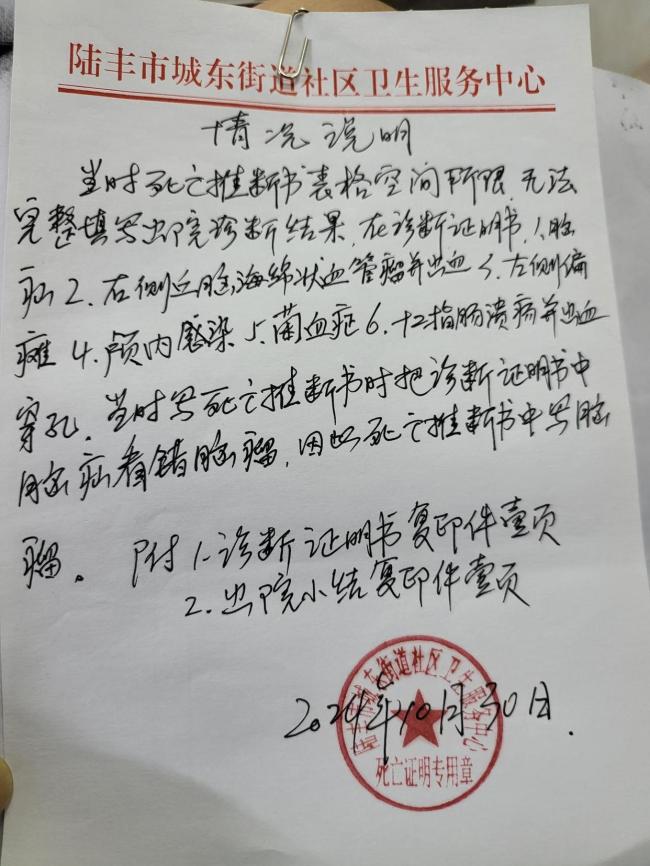 陆丰市城东街道社区卫生服务中心
情况说明
当时死亡推断书表格空间所限无法
完整填写出院诊断结果，在诊断证明书，1、脑
疝2、右侧丘脑海绵状血管瘤并出血3、左侧偏
瘫4、颅内感染5、菌血症6、十二指肠溃疡并出血
穿孔，当时写死亡推断书时把诊断证明书中
脑疝看错脑瘤，因此死亡推断书中写脑
瘤。 附1、诊断证明书复印件壹页
2、出院小结复印件壹页
2024年10月30日.
陆丰市城东街道社区卫生服务中心
死亡证明专用章